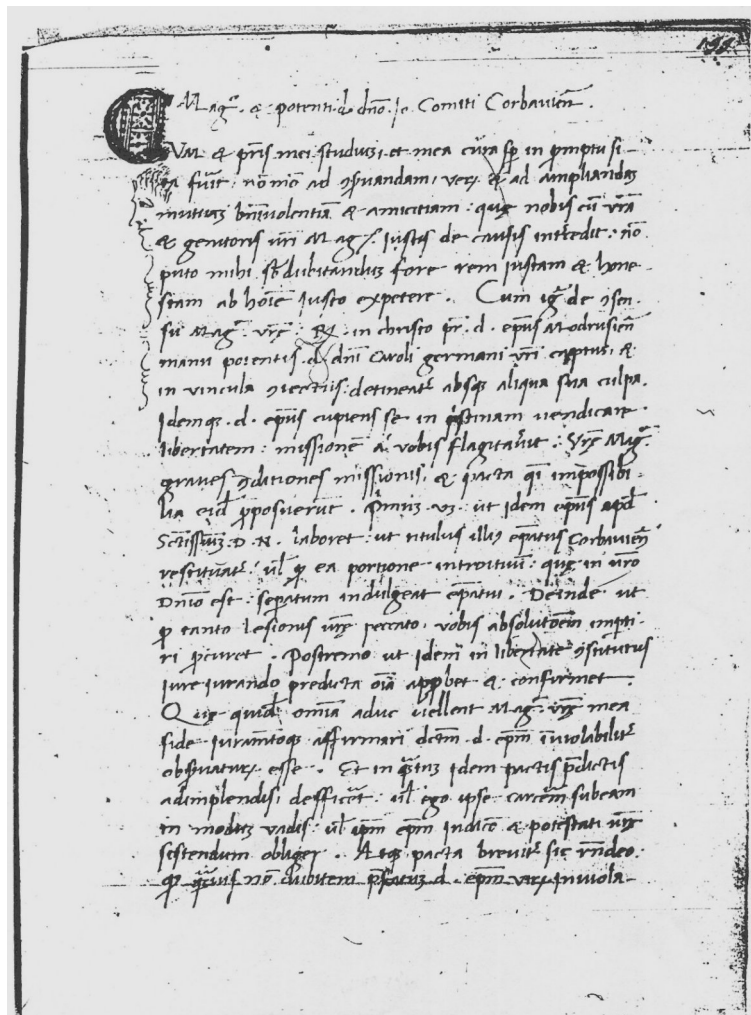 199
Magᶜᵒ. & potenti d. dño. Jo. Comiti Corbavieñ.
Vm & pr̃is mei studium et mea cura sp̄ in p̃mptu si-
ta fuit nō mō ad 9ẜvandam, verȝ & ad ampliandaȝ
mutuaȝ bñivolentiā & amicitiam: quę nobis cū vr̃a
& genitoris vr̃i Magᵗⁱᵃ. Iustis de causis int̃cedit: nō
puto mihi dubitandum fore rem iustam & hone-
stam ab hoīe Iusto expetere. Cum igʳ de 9sen-
su Magᶜᵉ. vr̃ę: R. in christo pr̃. d. ep̃us Modrusieñ
manu potentis d. dñi Caroli germani vr̃i captus, &
in vincula 9iectus: detineatʳ absqȝ aliqua sua culpa.
Idemqȝ. d. ep̃us cupiens se in p̃stinam vendicare
libertatem: missionē a vobis flagitaverit: Vr̃ę Magᶜᵉ.
graves 9ditiones missionis, & pacta q̃i impossibi-
lia eid̃ p̃posuerunt. Primuȝ vȝ. ut idem ep̃us apd̃
Sctissimuȝ. D. N. laboret ut titulus illiȝ ep̃atus Corbavieñ
restituatʳ: ul̃ ꝓ ea portione introituū: quę in vr̃o
Dñio est: sep̃atum indulgeat ep̃atui. Deinde ut
ꝓ tanto lesionis vr̃ę peccato, vobis absolutōem imp̃ti-
ri p̃curet. Postremo ut Idem in libertate 9stitutus
iure iurando predicta oīa app̃bet & confirmet.
Quę quid̃ omīa aduc vellent Magᶜᵉ. vr̃ę mea
fide Iuram̃toqȝ affirmari dc̄tm. d. ep̃m inviolabilitʳ
obẜvaturȝ esse. Et in q̃ntuȝ idem pactis p̃dictis
adimplendis, defficēt: ul̃ ego ipse carcēm subeam
in moduȝ vadis: ul̃ ip̃m ep̃m Indicē & potestati vr̃ę
sistendum obliger. Atqȝ pacta brevitʳ sic rñdeo.
qȝ q̃mvis nō dubitem p̃fatuȝ d. ep̃m vaȝ Inviola-